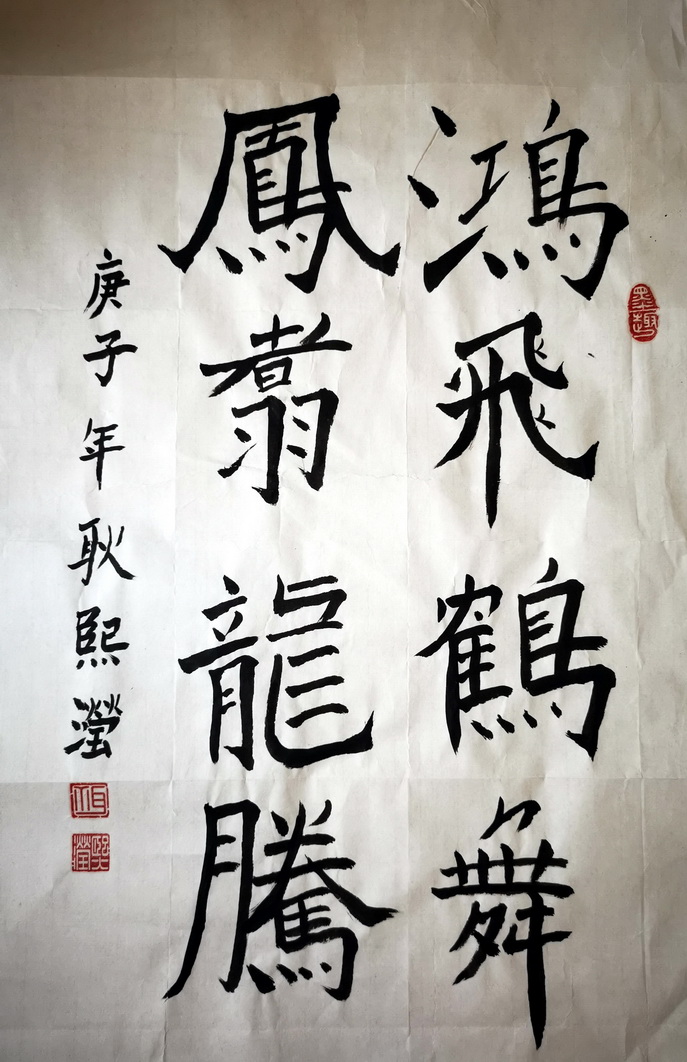 墨趣
鴻飛鶴舞
鳳翥龍騰
庚子年耿熙瀅